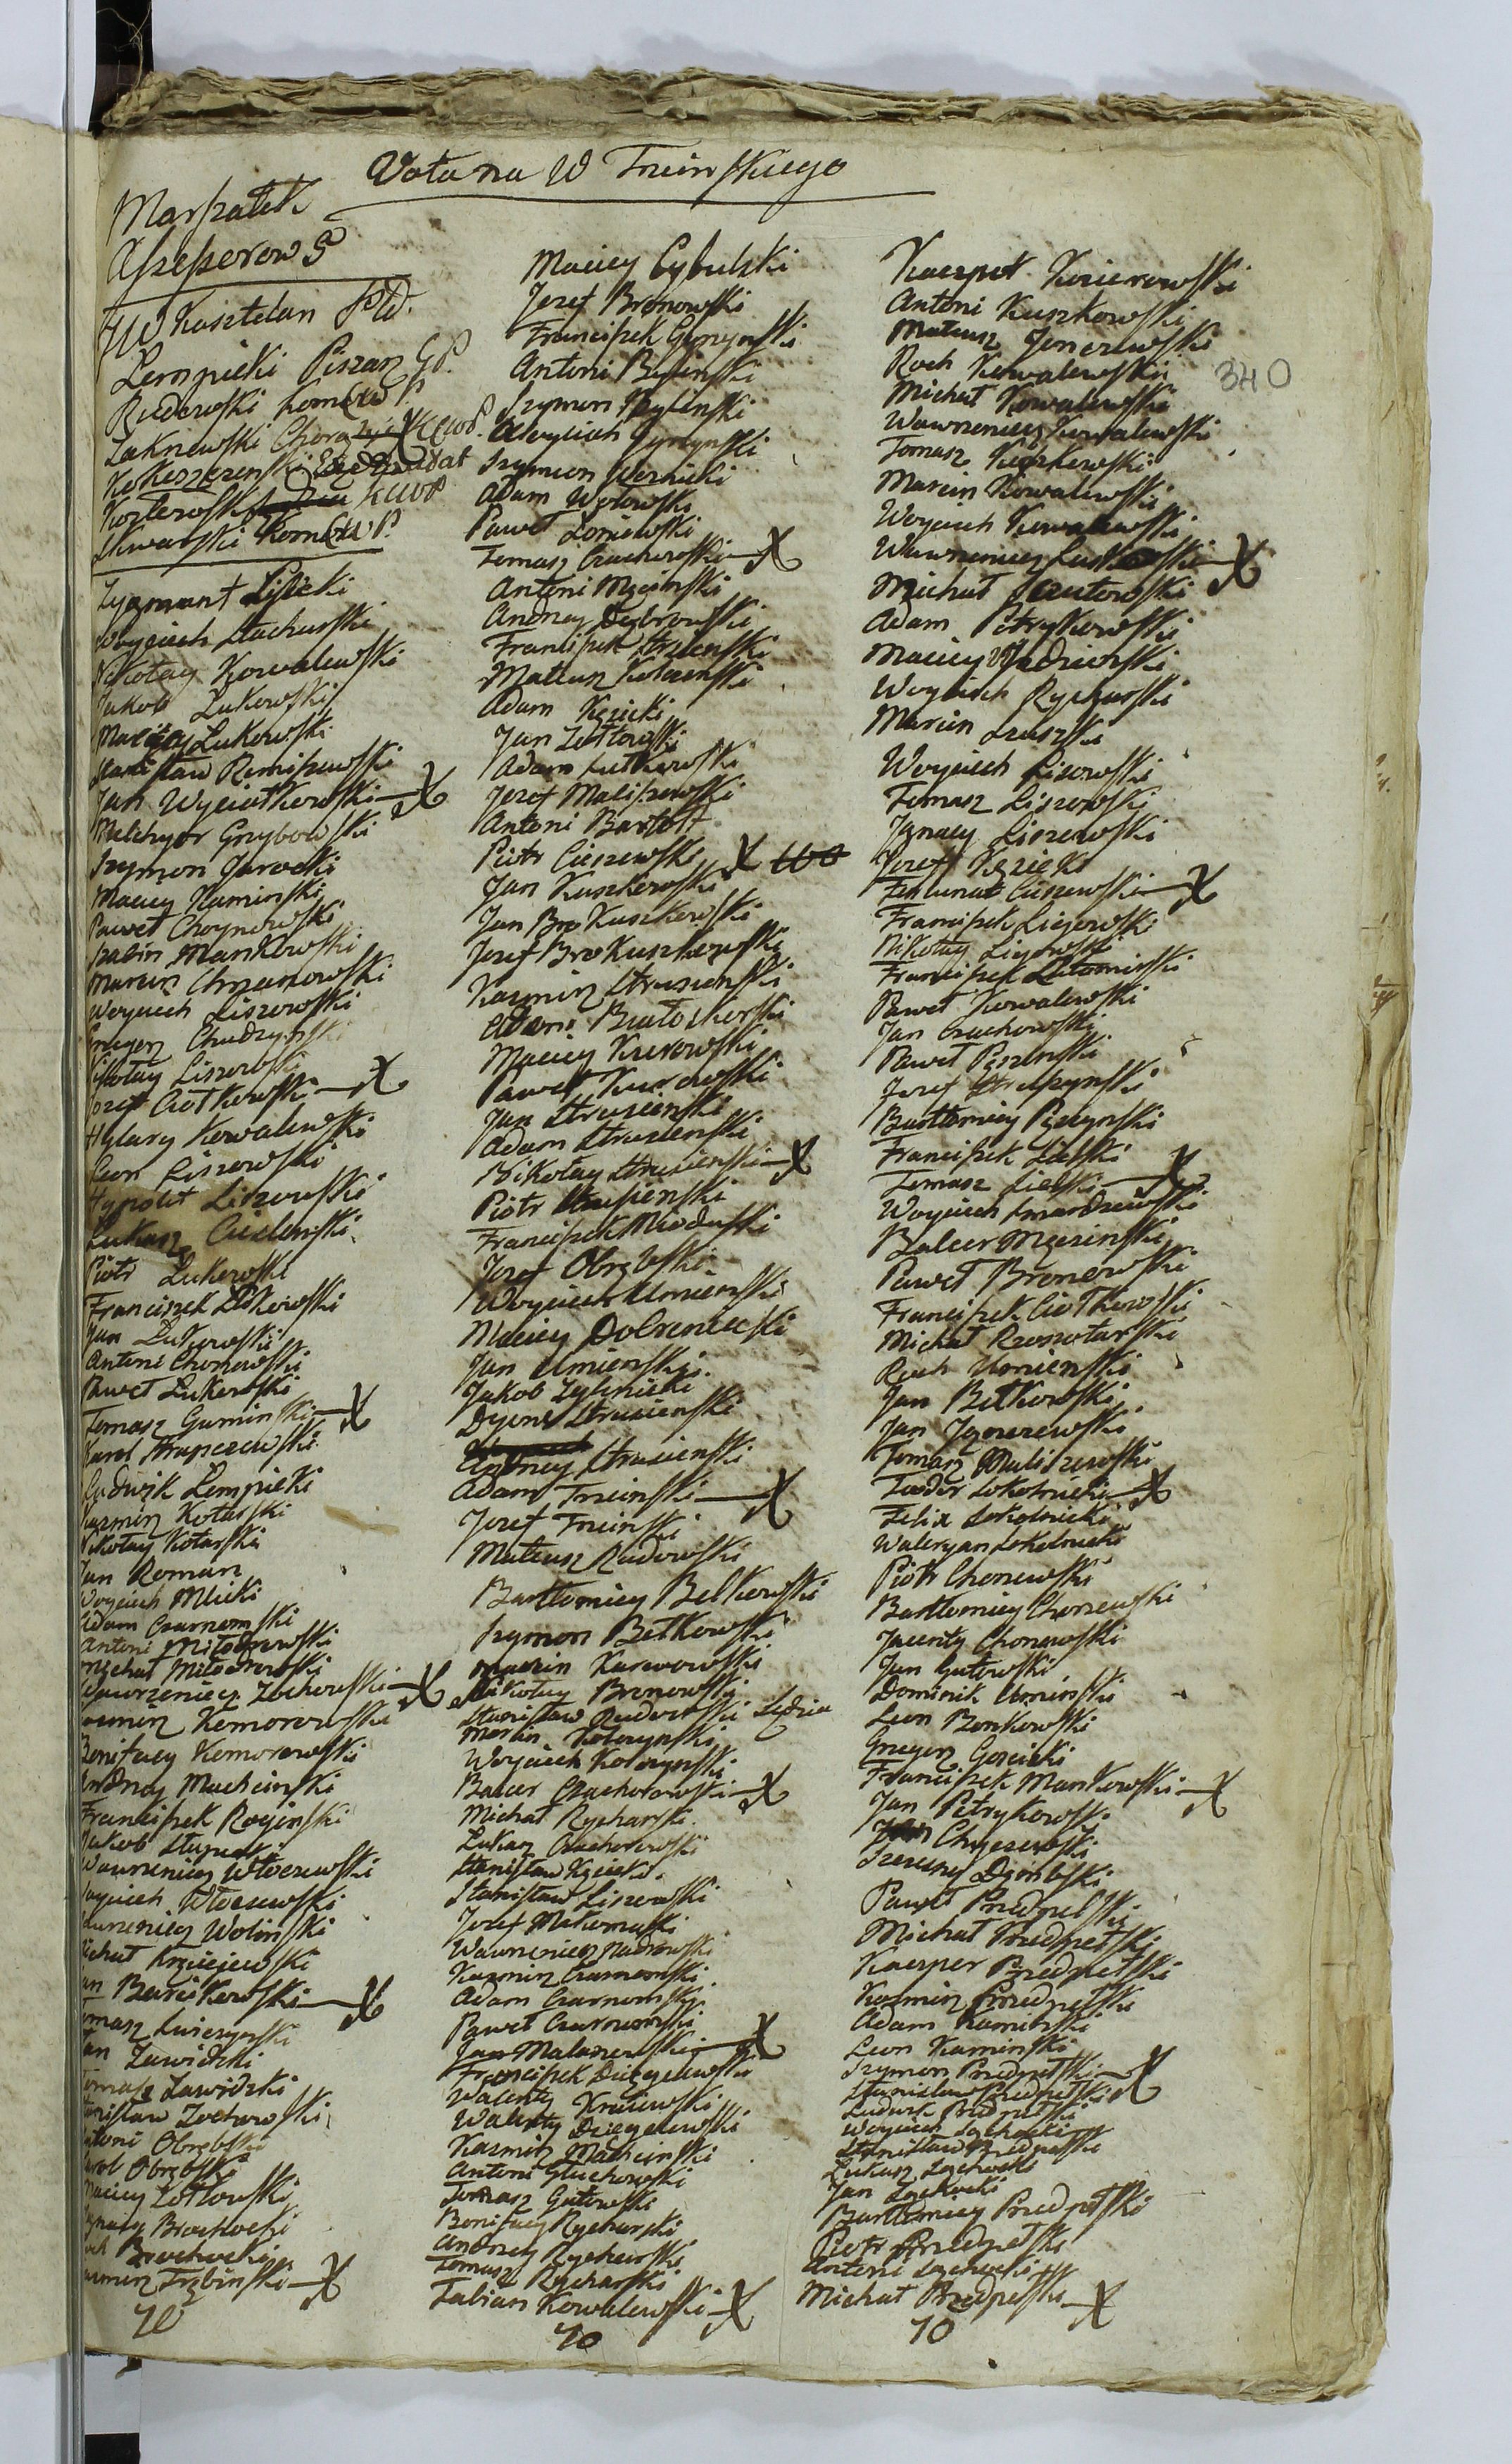 Vota na W Trzinskiego
Marszałek
Assessorow 5
JW Kasztelan
Lempicki Pisarz G P.
Rudowski Kom Cw P.
Zygmunt Lisicki
Woyciech Stachurski
Mikołay Kowalewski
Jakob Łukowski
Maciey Łukowski
Stanisław Remiszewski
Jan Wyciałkowski
Melchyor Grzybowski
Szymon Jarocki
Maciey Kaminski
Paweł Choynowski
Sabin Mankowski
Marcin Chrzanowski
Woyciech Liszewski
Grzegorz Chudzynski
Mikołay Liszewski
Jozef Ciołkowski
Hylary Kowalewski
Leon Liszewski
Hypolit Liszewski
Łukasz Cieslenski
Piotr Łukowski
Franciszek Łukowski
Jan Łukowski
Antoni Chorzewski
Paweł Łukowski
Tomasz Guminski
Karol Krupczewski
Ludwik Lempicki
Kazmirz Kotarski
Mikołay Kotarski
Jan Roman
Woyciech Mlicki
Adam Czarnomski
Antoni Miłodrowski
Michał Miłodrowski
Wawrzeniec Zochowski
Kazmirz Komorowski
Bonifacy Komorowski
Andrzey Machcinski
Franciszek Roginski
Jakob Słupecki
Wawrzeniec Włoczewski
Woyciech Włoczewski
Wawrzeniec Wolinski
Michał Krzciejewski
Jan Bericzkowski
Tomasz
Jan Zawidzki
Tomasz Zawidzki
Stanisław Zochowski
Antoni Obrębski
Karol Obrębski
Maciey Zołtowski
Ignacy Brochocki
Roch Brochocki
Kazmirz Trzbinski
70
Maciey Cybulski
Jozef Bronowski
Franciszek Gymzynski
Antoni Bylinski
Szymon Bylinski
Szymon Wernicki
Adam
Paweł Zoniewski
Tomasz Czachorowski
Antoni Męzinski
Andrzey Dąbrowski
Franciszek Strusienski
Mateusz Kolczenski
Adam Kęsicki
Jan Zołtowski
Adam Lutkowski
Jozef Maliszewski
Antoni Bartołt
Piotr Cieszewski
Jan Kuszkowski
Jan Bro Kuszkowski
Jozef Bro Kuszkowski
Kazmirz Strusienski
Adam Białoskorski
Maciey Kurowski
Paweł Kurowski
Jan Strusienski
Adam Strusienski
Mikołay Strusienski
Piotr Strusienski
Franciszek Mioduski
Jozef Obrębski
Woyciech Umienski
Maciey Dobrzeniecki
Jan Umienski
Jakob Zylinicki
Dyoni Strusienski
Andrzey Strusienski
Adam Trzinski
Jozef Trzinski
Mateusz Rudowski
Bartłomiey Bełkowski
Szymon Bełkowski
Marcin Karwowski
Mikołay Bronowski
Stanisław Rudowski Sędzia
Marcin Kolczynski
Woyciech Kolczynski
Balcer Czachorowski
Michał Rycharski
Łukasz Czachorowski
Stanisław Kęsicki
Stanisław Liszewski
Jozef Makomaski
Wawrzeniec Nadrowski
Kazmirz Czarnomski
Adam Czarnomski
Paweł Czarnomski
Jan Malaszewski
Franciszek Dzięgielewski
Walenty Krasiewski
Walenty Dzięgielewski
Kazmirz Machcinski
Antoni Głuchowski
Tomasz Gutowski
Bonifacy Rycharski
Andrzey Rycharski
Tomasz Rycharski
Fabian Kowalewski
70
340
Kacper Kozierowski
Antoni Kuszkowski
Mateusz Jenczewski
Roch Kowalewski
Michał Kowalewski
Wawrzeniec Kowalewski
Tomasz Kuszkowski
Marcin Kowalewski
Woyciech Kowalewski
Wawrzeniec
Michał
Adam Petrykowski
Maciey Wądziewski
Woyciech Rycharski
Marcin
Woyciech Lisowski
Tomasz Liszewski
Ignacy Liszewski
Jozef Kęsicki
Fortunat Cieszewski
Franciszek Ligowski
Mikołay Ligowski
Franciszek Lutomirski
Paweł Kowalewski
Jan Czachowski
Paweł
Jozef
Bartłomiey
Franciszek Lielski
Tomasz Lielski
Woyciech Smardzewski
Balcer Męzinski
Paweł Bronowski
Franciszek Ciołkowski
Michał Rzeszotarski
Roch Umienski
Jan Bełkowski
Jan Jgorzewski
Tomasz Maliszewski
Teodor Sokolnicki
Felix Sokolnicki
Waleryan Sokolnicki
Piotr Chorzewski
Bartłomiey Chorzewski
Jacenty Chorzewski
Jan Gutowski
Dominik Uminski
Leon Bonkowski
Grzegorz Goscicki
Franciszek Mankowski
Jan Petrykowski
Szczesny Dzimbski
Paweł Przedpełski
Michał Przedpełski
Kacper Przedpełski
Kazmirz Przedpełski
Adam Kaminski
Leon Kaminski
Szymon Przedpełski
Stanisław Przedpełski
Ludwik Przedpełski
Woyciech Zochocki
Stanisław Przedpełski
Łukasz
Jan
Bartłomiey Przedpełski
Piotr Przedpełski
Antoni
Michał Przedpełski
70